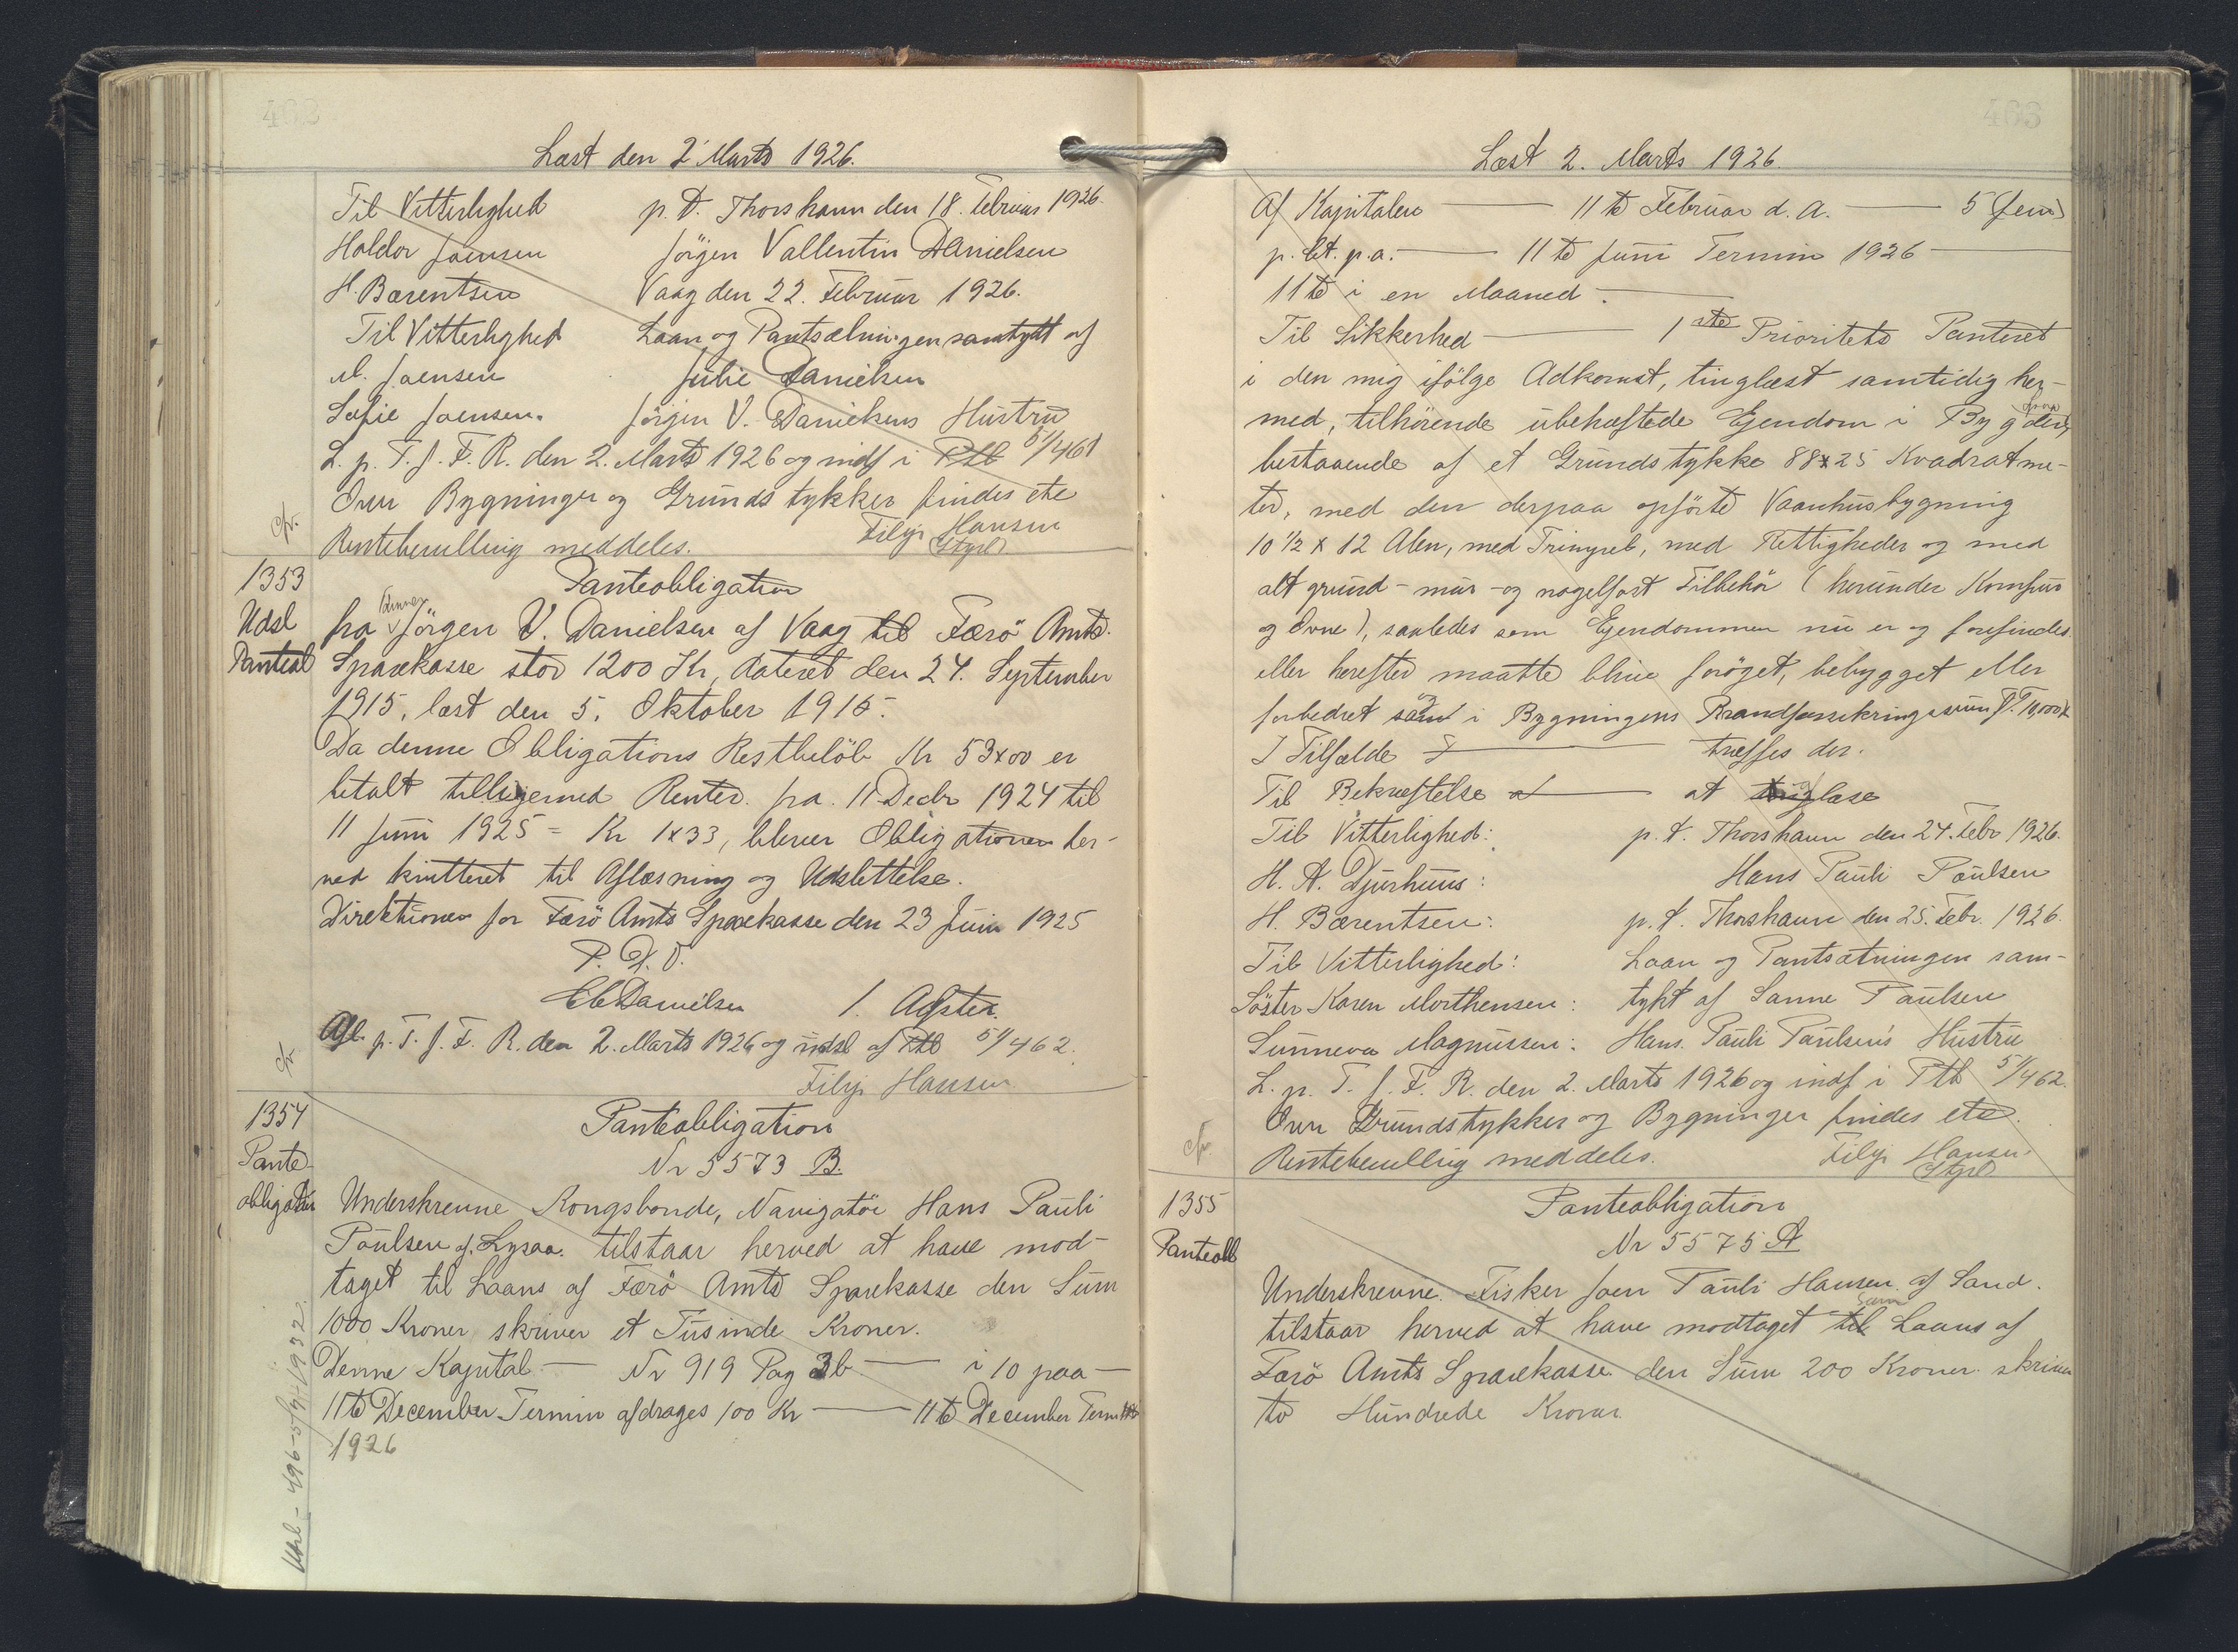 462
Læst den 2' Marts 1926.
Til Vitterlighed p. t. Thorshavn den 18. Februar 1926.
Haldor Joensen Jörgen Vallentin Danielsen
H. Bærentsen Vaag den 22. Februar 1926.
Til Vitterlighed Laan og Pantsætningen samtykt af
M. Joensen Julie Danielsen
Sofie Joensen. Jörgen V. Danielsens Hustru
L. p. T. f. F. R. den 2. Marts 1926 og indf i Ptb 51/461
Over Bygninger og Grundstykker findes etc
Rentebevilling meddeles. Filip Hansen
Styrel
1353
Udsl
Panteobl
Panteobligation
fra Jörgen V. Danielsen af Vaag til Færö Amts
Sparekasse stor 1200 Kr, dateret den 24. September
1915, læst den 5. Oktober 1915.
Da denne Obligations Restbelöb Kr 53x00 er
betalt tilligemed Renter fra 11 Decbr 1924 til
11 Juni 1925 = Kr 1x33, bliver Obligationen her-
ved kvitteret til Aflæsning og Udslettelse.
Direktionen for Færö Amts Sparekasse den 23 Juni 1925
P. D. V.
C Danielsen /. Agster.
Afl. p. T. f. F. R. den 2. Marts 1926 og udsl af Ptb 51/462.
Filip Hansen
1354
Pante-
obligation
Panteobligation
Nr 5573 B.
Underskrevne Kongsbonde, Navigatör Hans Pauli
Poulsen af Lysaa. tilstaar herved at have mod-
taget til Laans af Færö Amts Sparekasse den Sum
1000 Kroner, skriver et Tusinde Kroner.
Denne Kapital — Nr 919 Pag 3b — i 10 paa —
11te December Termin afdrages 100 Kr — 11te December Termin
1926
Udsl - 496-5/4-1932.
463
Læst 2. Marts 1926.
Af Kapitalen — 11te Februar d. A. — 5 (fem)
p. Ct. p. a. — 11te Juni Termin 1926 —
11te i en Maaned. —
Til Sikkerhed — 1ste Prioritets Panteret
i den mig ifölge Adkomst, tinglæst samtidig her-
med, tilhörende ubehæftede Ejendom i Bygden,
bestaaende af et Grundstykke 88x25 Kvadratme-
ter, med den derpaa opförte Vaanhusbygning
10 1/2 x 12 Alen, med Rettigheder og med
alt grund- mur- og nagelfast Tilbehör (herunder Komfur
og Ovne), saaledes som Ejendommen nu er og forefindes
eller herefter maatte blive foröget, bebygget eller
forbedret samt i Bygningens Brandforsikringssum p. T. 10,000 Kr
I Tilfælde — træffes der.
Til Bekræftelse — at tinglæse
Til Vitterlighed: p. t. Thorshavn den 24. Febr 1926.
H. A. Djurhuus: Hans Pauli Poulsen
H. Bærentsen: p. t. Thorshavn den 25. Febr. 1926.
Til Vitterlighed: Laan og Pantsætningen sam-
Söster Karen Morthensen: tykt af Sanne Paulsen
Sunneva Magnussen: Hans Pauli Paulsen's Hustru
L. p. T. f. F. R. den 2. Marts 1926 og indf i Ptb 51/462.
Over Grundstykker og Bygninger findes etc.
Rentebevilling meddeles. Filip Hansen
Styrel
1355
Panteobl
Panteobligation
Nr 5575 A
Underskrevne Fisker Joen Pauli Hansen af Sand.
tilstaar herved at have modtaget til Laans af
Færö Amts Sparekasse den Sum 200 Kroner skriver
to Hundrede Kroner